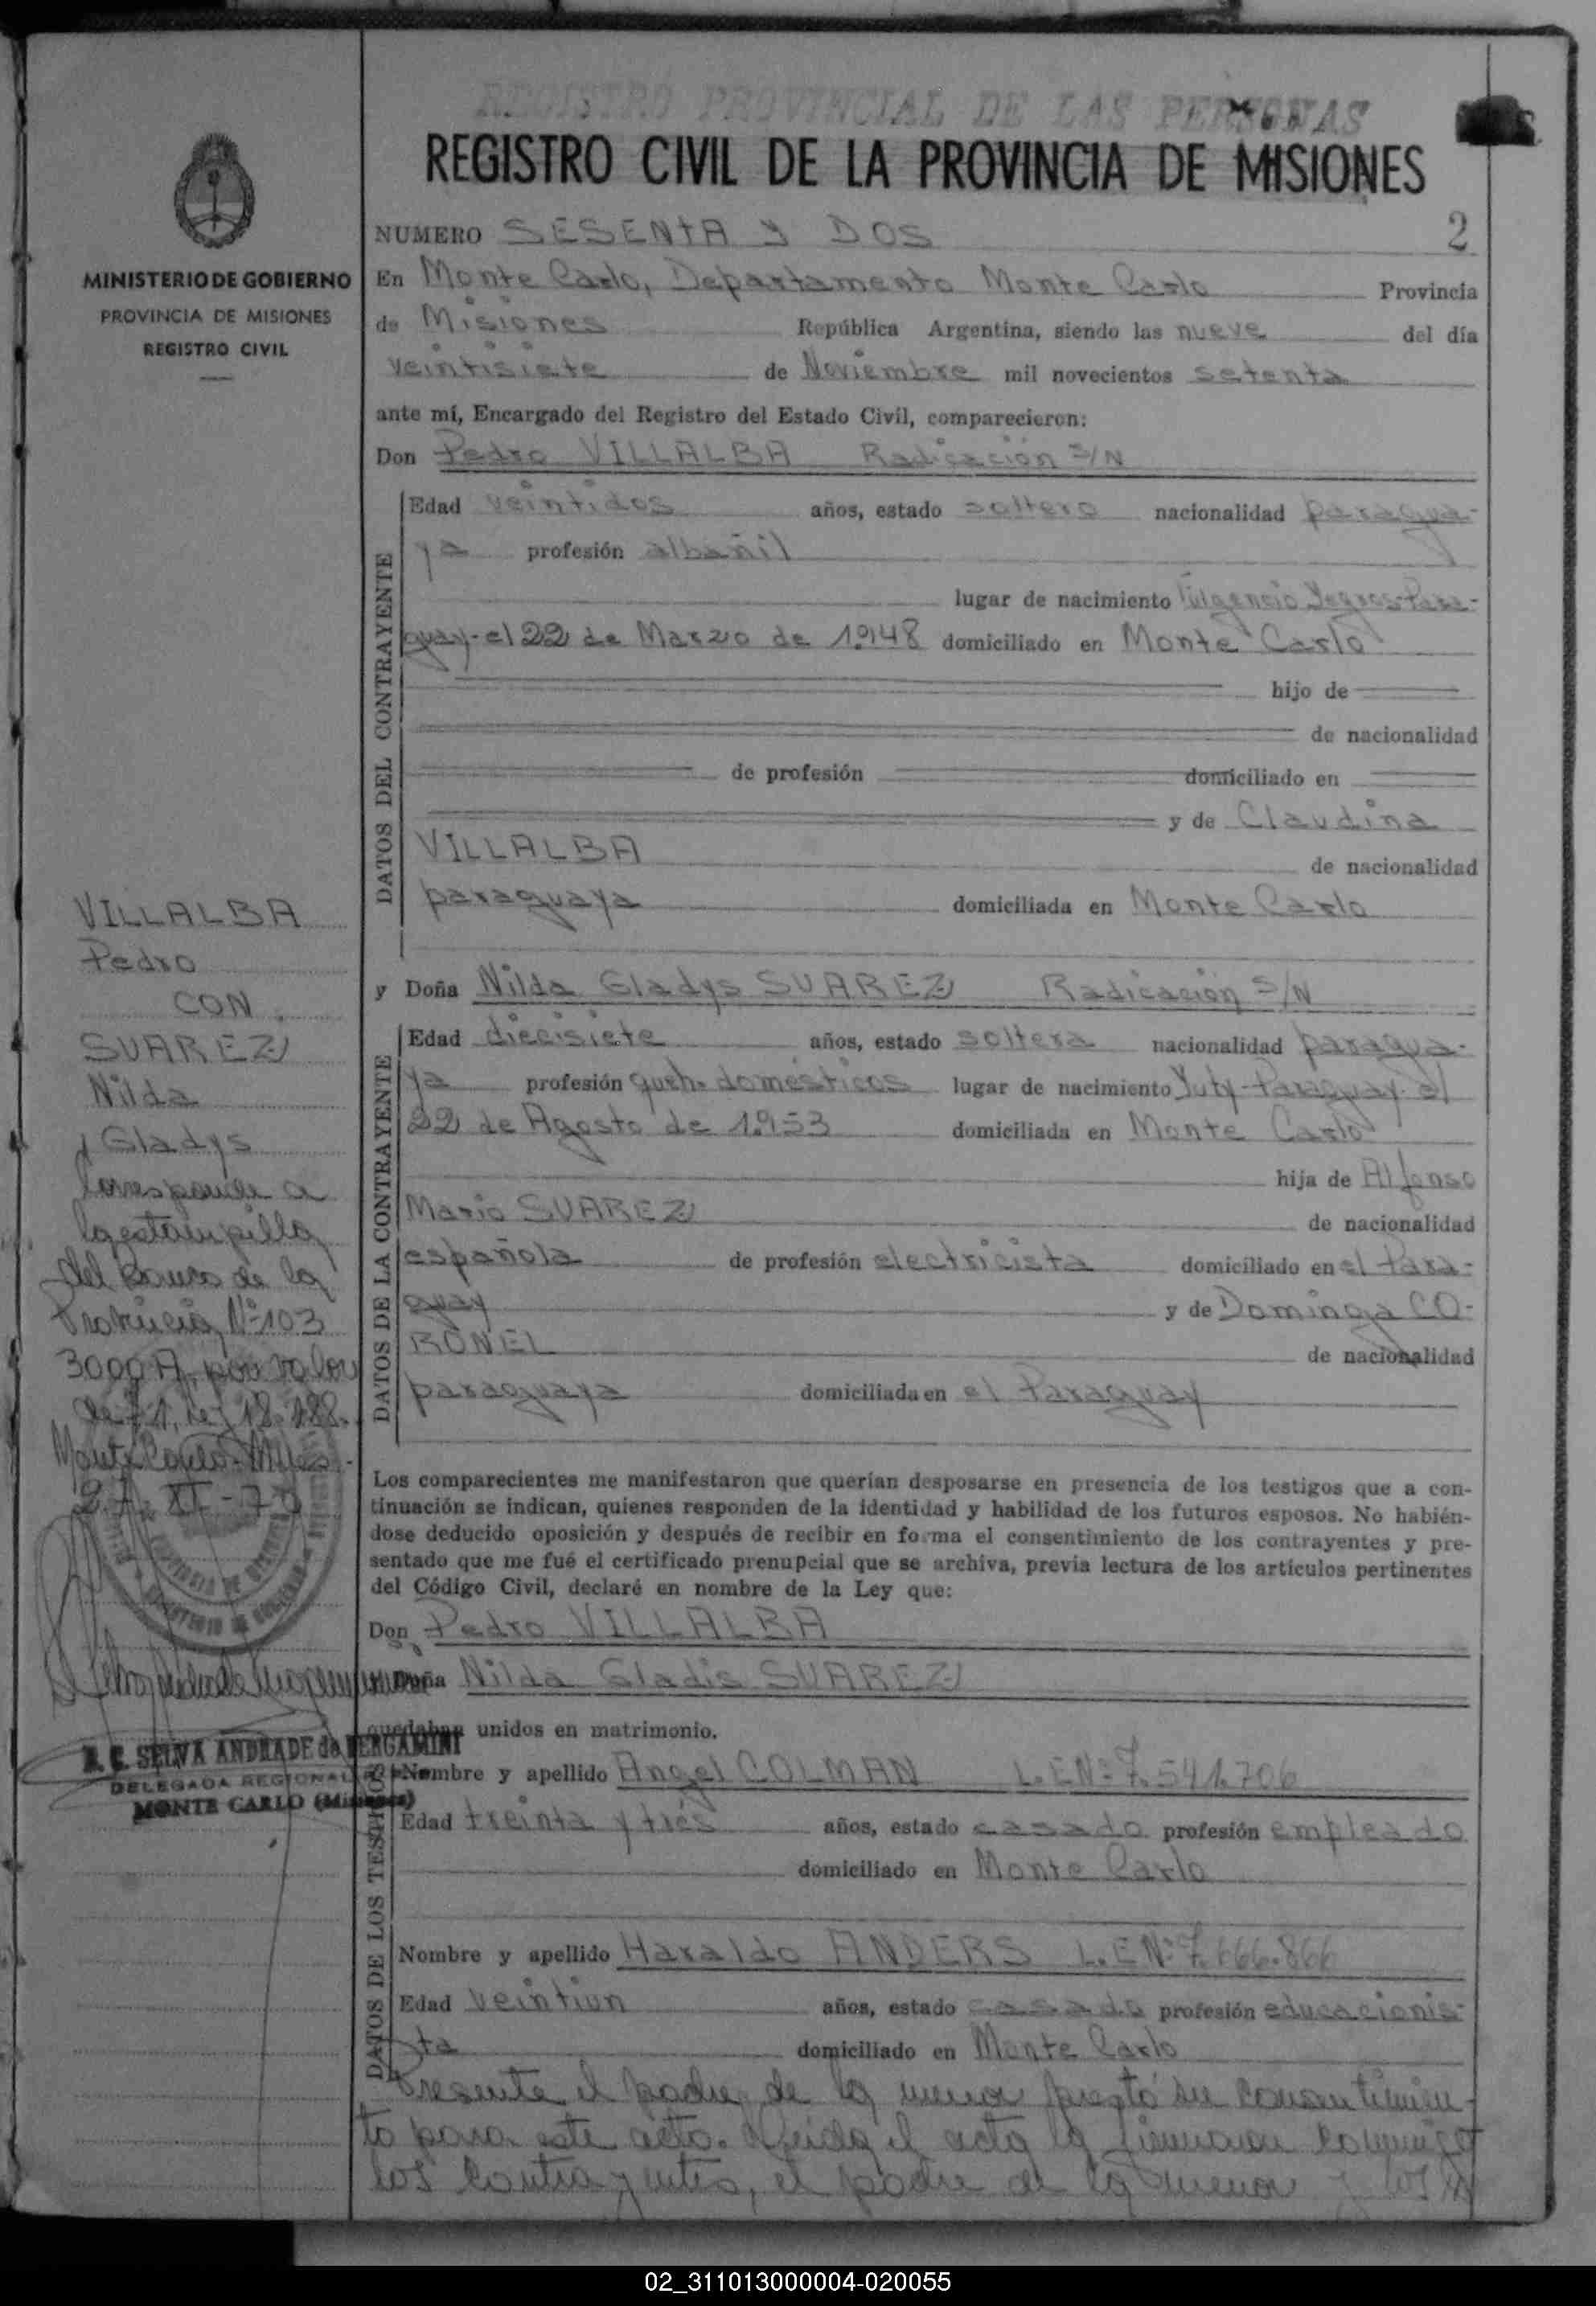 REGISTRO PROVINCIAL DE LAS PERSONAS
REGISTRO CIVIL DE LA PROVINCIA DE MISIONES
MINISTERIO DE GOBIERNO
PROVINCIA DE MISIONES
REGISTRO CIVIL
NUMERO SESENTA Y DOS 2
En Monte Carlo, Departamento Monte Carlo Provincia
de Misiones República Argentina, siendo las nueve del día
veintisiete de Noviembre mil novecientos setenta
ante mí, Encargado del Registro del Estado Civil, comparecieron:
Don Pedro VILLALBA Radicación S/N
DATOS DEL CONTRAYENTE
Edad veintidos años, estado soltero nacionalidad paragua-
ya profesión albañil
lugar de nacimiento Fulgencio Yegros-Para-
guay-el 22 de Marzo de 1.948 domiciliado en Monte Carlo
hijo de
de nacionalidad
de profesión domiciliado en
y de Claudina
VILLALBA de nacionalidad
paraguaya domiciliada en Monte Carlo
y Doña Nilda Gladys SUAREZ Radicación S/N
DATOS DE LA CONTRAYENTE
Edad diecisiete años, estado soltera nacionalidad paragua-
ya profesión queh. domésticos lugar de nacimiento Yuty-Paraguay-el
22 de Agosto de 1.953 domiciliada en Monte Carlo
hija de Alfonso
Mario SUAREZ de nacionalidad
española de profesión electricista domiciliado en el Para-
guay y de Dominga CO-
RONEL de nacionalidad
paraguaya domiciliada en el Paraguay
Los comparecientes me manifestaron que querían desposarse en presencia de los testigos que a con-
tinuación se indican, quienes responden de la identidad y habilidad de los futuros esposos. No habién-
dose deducido oposición y después de recibir en forma el consentimiento de los contrayentes y pre-
sentado que me fué el certificado prenupcial que se archiva, previa lectura de los artículos pertinentes
del Código Civil, declaré en nombre de la Ley que:
Don Pedro VILLALBA
Doña Nilda Gladis SUAREZ
quedaban unidos en matrimonio.
DATOS DE LOS TESTIGOS
Nombre y apellido Angel COLMAN L.E.Nº 7.541.706
Edad treinta y trés años, estado casado profesión empleado
domiciliado en Monte Carlo
Nombre y apellido Haraldo ANDERS L.E.Nº 7.666.866
Edad veintiun años, estado casado profesión educacionis-
ta domiciliado en Monte Carlo
Presente el padre de la menor prestó su consentimien-
to para este acto. Leida el acta la firmaron conmigo
los contrayentes, el padre de la menor y los
VILLALBA
Pedro
CON
SUAREZ
Nilda
Gladys
Corresponde a
la estampilla
del Banco de la
Provincia Nº 103
3000 A, por valor
de $1, Ley 18.188.
Monte Carlo-Mnes-
27-XI-70
R. E. SELVA ANDRADE de BERGAMINI
DELEGADA REGIONAL
MONTE CARLO (Misiones)
02_311013000004-020055